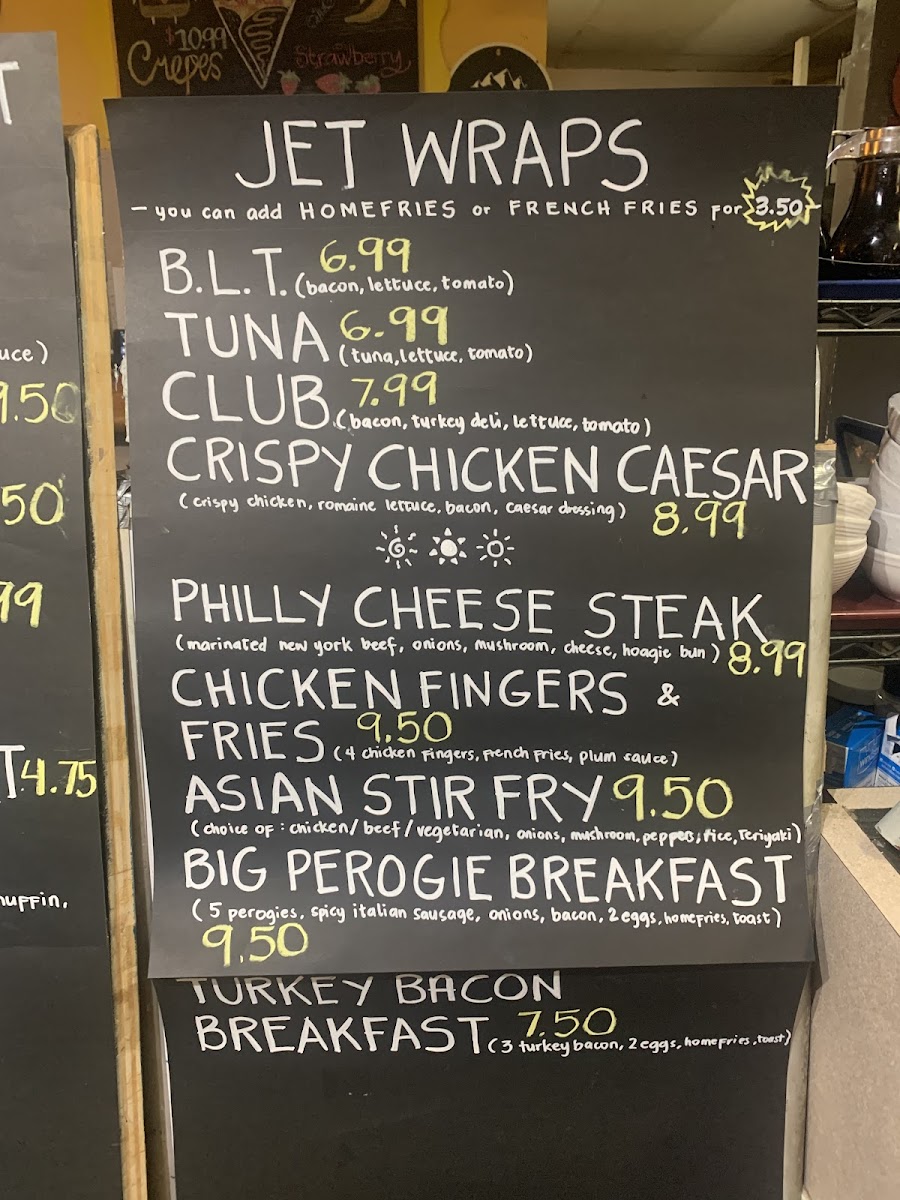 $10.99
Crepes
Strawberry
T
uce)
9.50
50
99
T 4.75
muffin,
JET WRAPS
- you can add HOMEFRIES or FRENCH FRIES for 3.50
B.L.T. 6.99
(bacon, lettuce, tomato)
TUNA 6.99
(tuna, lettuce, tomato)
CLUB 7.99
(bacon, turkey deli, lettuce, tomato)
CRISPY CHICKEN CAESAR
(crispy chicken, romaine lettuce, bacon, caesar dressing) 8.99
PHILLY CHEESE STEAK
(marinated new york beef, onions, mushroom, cheese, hoagie bun) 8.99
CHICKEN FINGERS &
FRIES 9.50
(4 chicken fingers, french fries, plum sauce)
ASIAN STIR FRY 9.50
(choice of: chicken/beef/vegetarian, onions, mushroom, peppers, rice, teriyaki)
BIG PEROGIE BREAKFAST
(5 perogies, spicy italian sausage, onions, bacon, 2 eggs, homefries, toast)
9.50
TURKEY BACON
BREAKFAST 7.50
(3 turkey bacon, 2 eggs, homefries, toast)